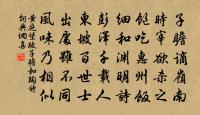 子瞻謫嶺南
時宰欲殺之
飽吃惠州飯
細和淵明詩
彭澤千載人
東坡百世士
出處雖不同
風味乃相似
黃庭堅跋子瞻和陶詩
詞典網